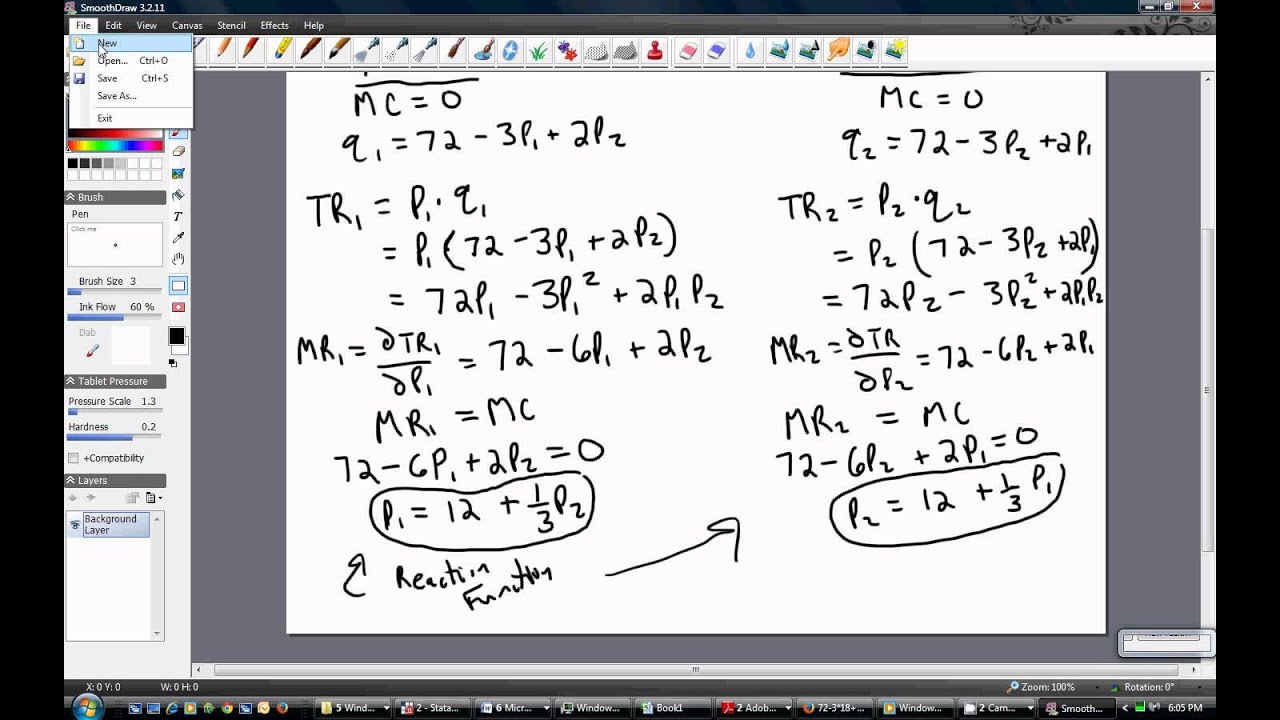 SmoothDraw 3.2.11
File Edit View Canvas Stencil Effects Help
New
Open... Ctrl+O
Save Ctrl+S
Save As...
Exit
Brush
Pen
Click me
Brush Size 3
Ink Flow 60 %
Dab
Tablet Pressure
Pressure Scale 1.3
Hardness 0.2
+Compatibility
Layers
Background
Layer
MC = 0
q₁ = 72 - 3P₁ + 2P₂
TR₁ = P₁ · q₁
= P₁ (72 - 3P₁ + 2P₂)
= 72P₁ - 3P₁² + 2P₁P₂
MR₁ = ∂TR₁/∂P₁ = 72 - 6P₁ + 2P₂
MR₁ = MC
72 - 6P₁ + 2P₂ = 0
P₁ = 12 + 1/3 P₂
Reaction
Function
MC = 0
q₂ = 72 - 3P₂ + 2P₁
TR₂ = P₂ · q₂
= P₂ (72 - 3P₂ + 2P₁)
= 72P₂ - 3P₂² + 2P₁P₂
MR₂ = ∂TR/∂P₂ = 72 - 6P₂ + 2P₁
MR₂ = MC
72 - 6P₂ + 2P₁ = 0
P₂ = 12 + 1/3 P₁
X: 0 Y: 0 W: 0 H: 0 Zoom: 100% Rotation: 0°
5 Wind... 2 - Stata... 6 Micr... Window... Book1 2 Adob... 72-3*18+... Window... 2 Cam... Smooth... 6:05 PM